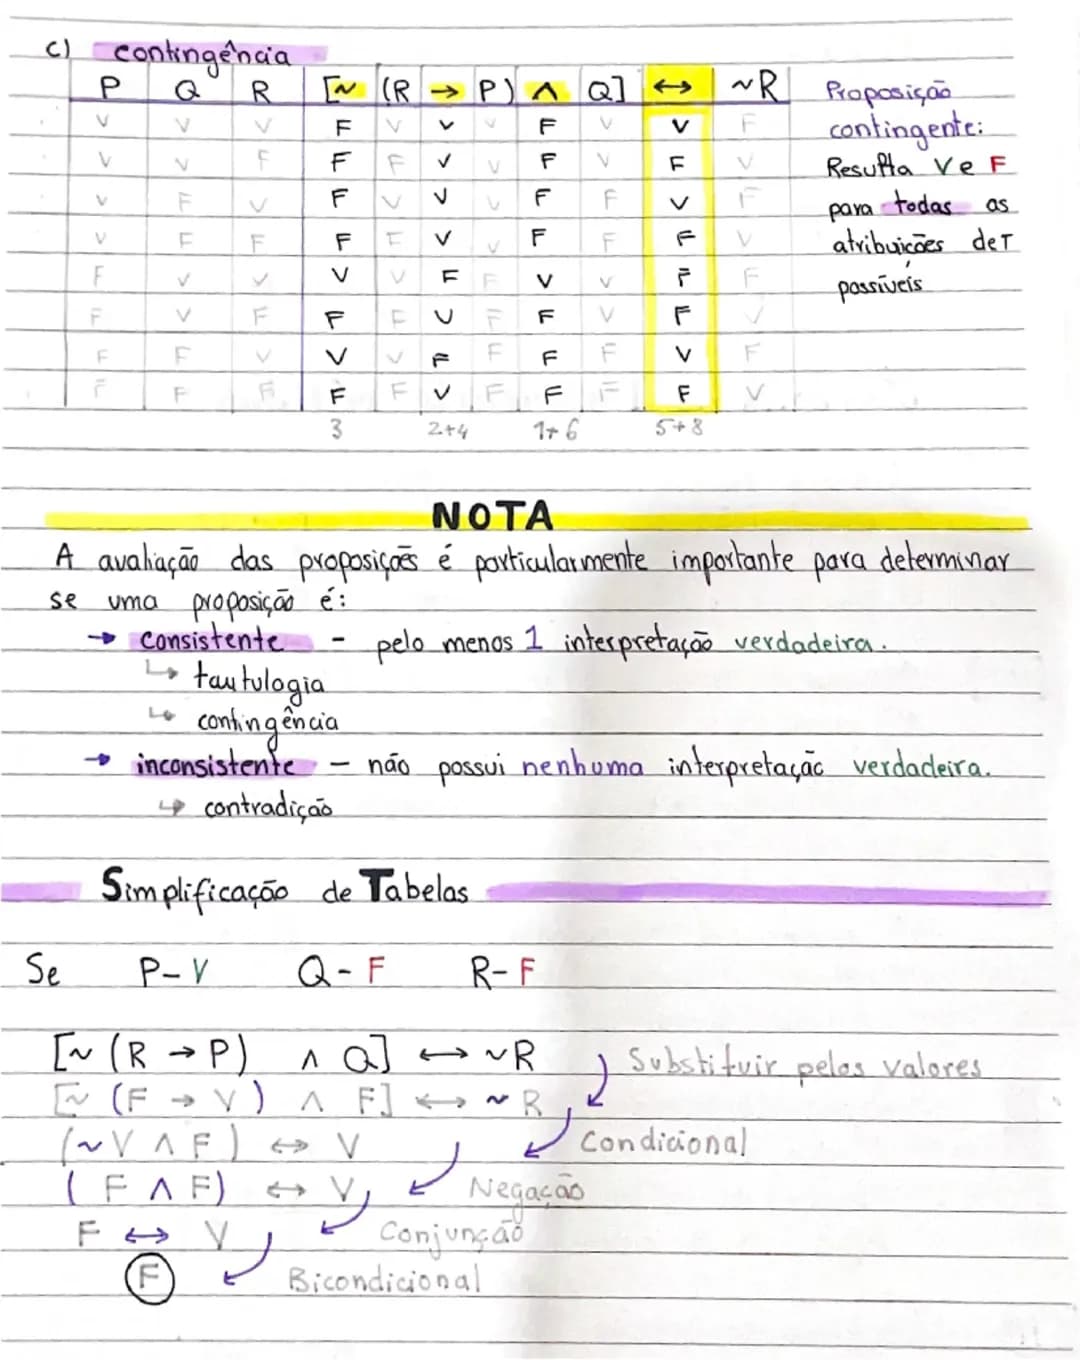 c) contingência
P Q R [~ (R → P) ∧ Q] ↔ ~R
V V V F V V V F V V F
V V F F F V V F V F V
V F V F V V V F F V F
V F F F F V V F F F V
F V V V V F F V V F F
F V F F F V F F V F V
F F V V V F F F F V F
F F F F F V F F F F V
3 2+4 1+6 5+8
Proposição
contingente:
Resulta V e F
para todas as
atribuições de T
possíveis
NOTA
A avaliação das proposições é particularmente importante para determinar
se uma proposição é:
→ consistente - pelo menos 1 interpretação verdadeira.
↳ tautulogia
↳ contingência
→ inconsistente - não possui nenhuma interpretação verdadeira.
↳ contradição
Simplificação de Tabelas
Se P-V Q-F R-F
[~ (R → P) ∧ Q] ↔ ~R Substituir pelos valores
[~ (F → V) ∧ F] ↔ ~R
(~V ∧ F) ↔ V Condicional
(F ∧ F) ↔ V Negação
F ↔ V Conjunção
F Bicondicional